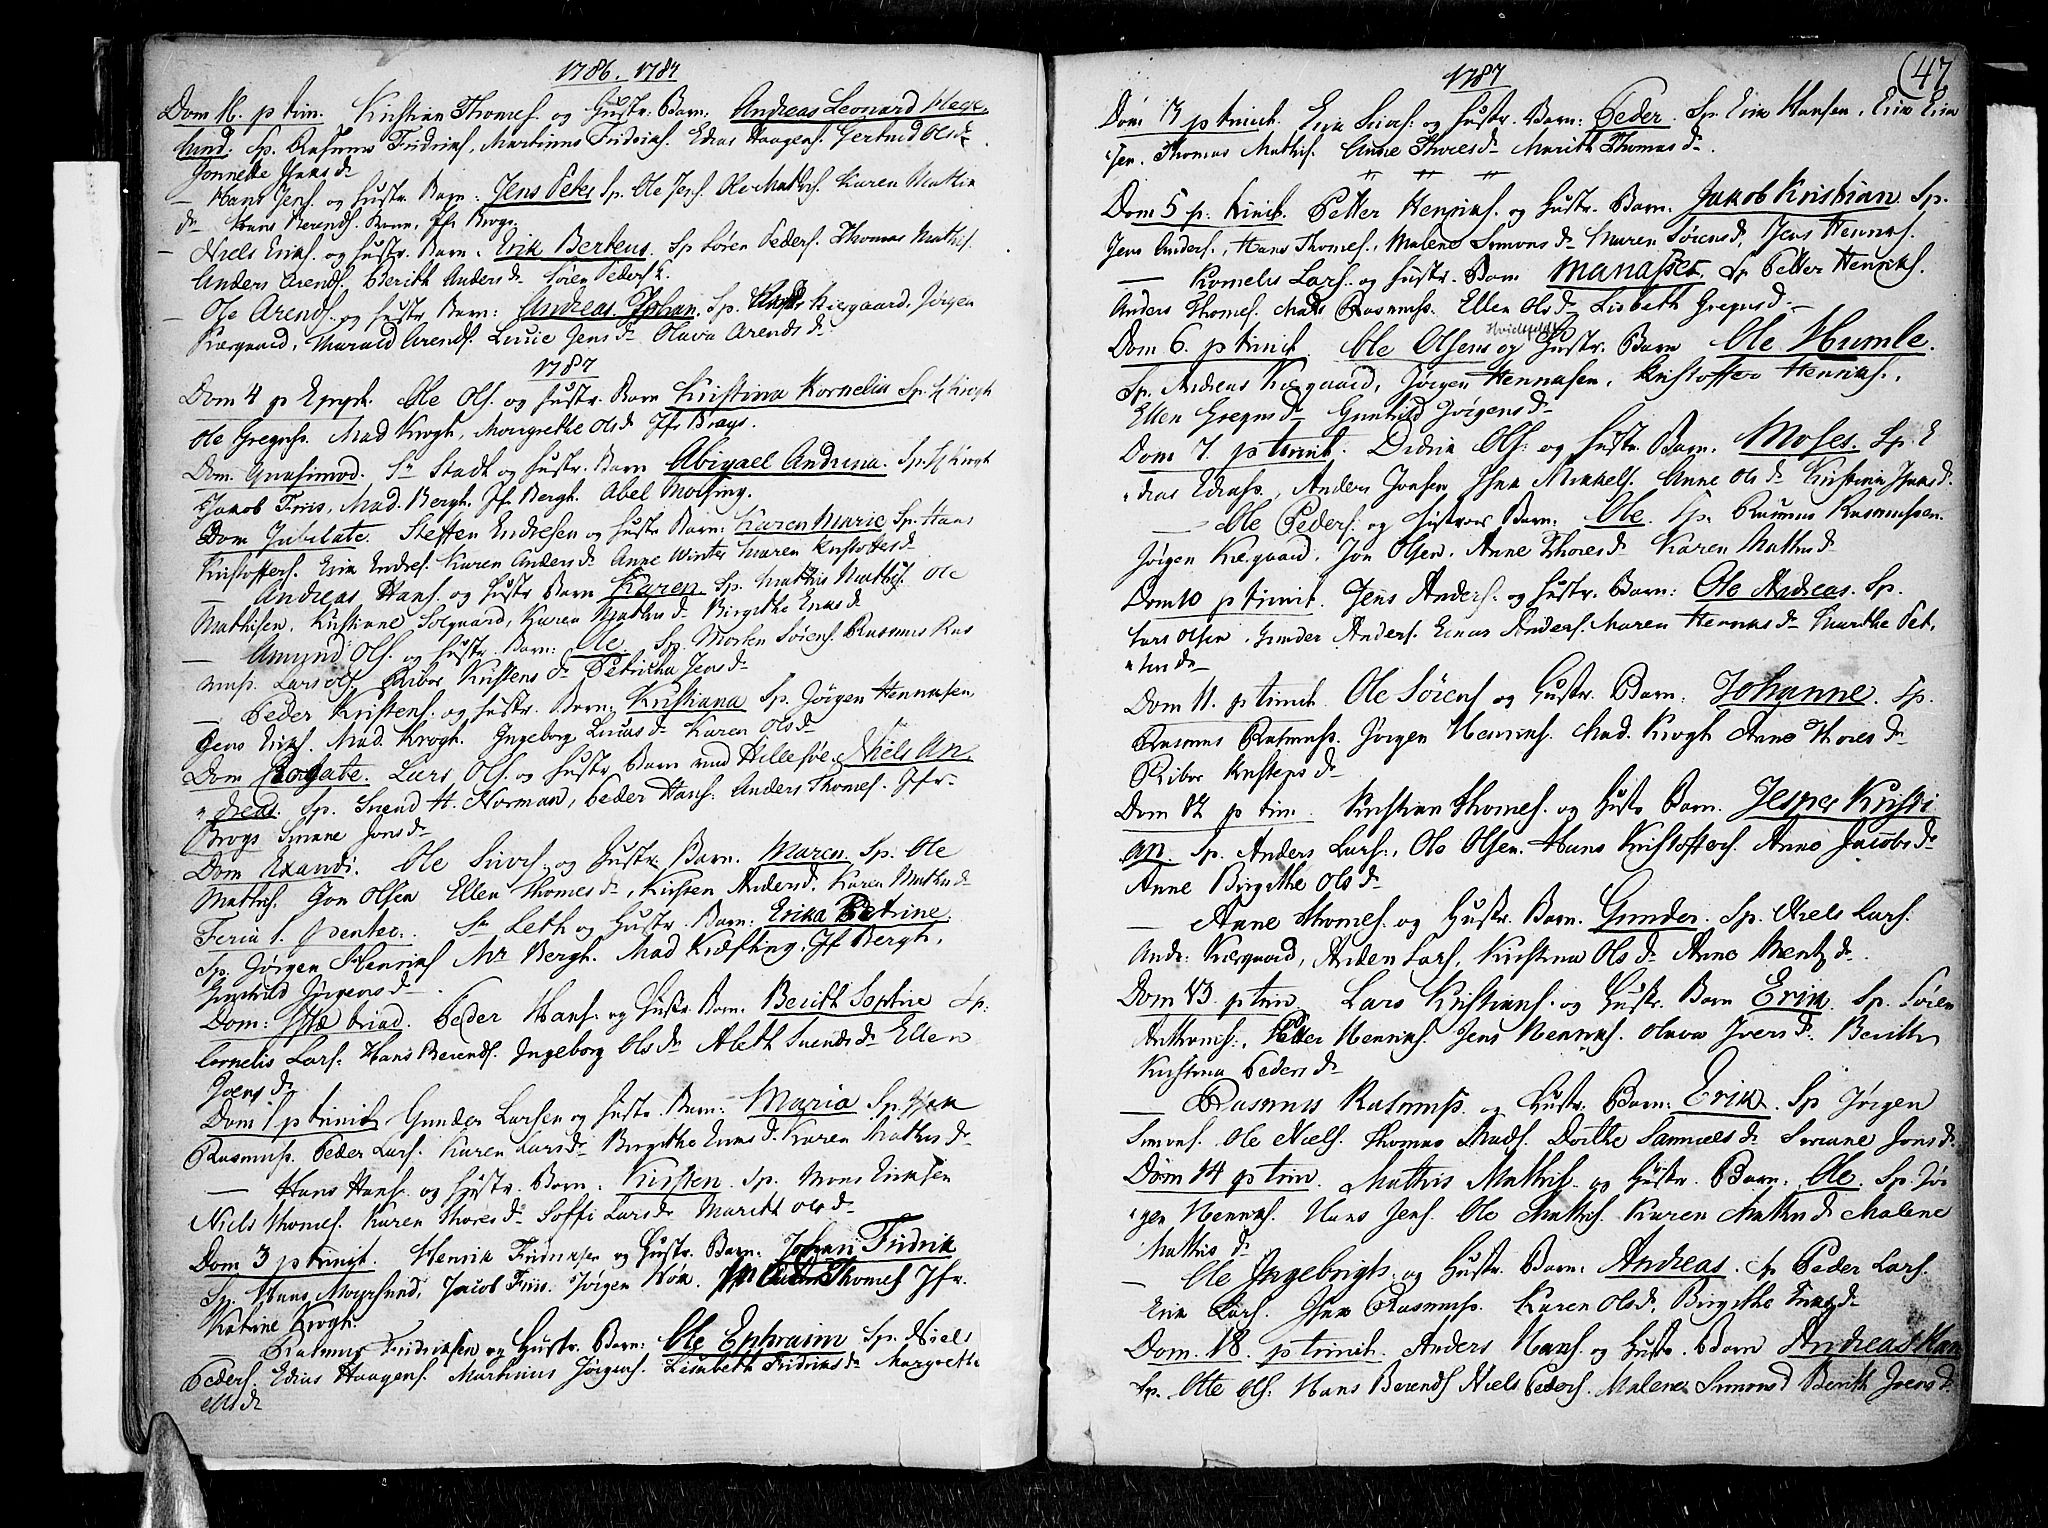 1786. 1787
Dom 16. p trin. Kristian Thomes. og Hustr. Barn: Andreas Leonard Hege
lund. Sp. Rasmus Fridriks. Martinus Fridriks. Edias Haagens. Gertrud Olsd.
Jonnette Isaksd
— Hans Jens. og Hustr. Barn: Jens Peter Sp. Ole Jens. Ole Mathis. Karen Mathis
d. Hans Berends. Jfr Brogs.
— Niels Eriks. og Hustr. Barn: Erik Berteus. Sp Søren Peders. Thomas Mathis.
Anders Arends. Berith Andersd Søren Peders
— Ole Arends. og Hustr Barn: Andreas Johan. Sp. Kiergaard. Jørgen
Kiergaard, Harald Arends. Lucie Jensd Olava Arendsd
1787
Dom 4 p Epiph. Ole Ols. og Hustr. Barn Kristina Kornelia Sp. Hr Krogh
Ole Gregus. Mad Krogh, Margrethe Olsd Jfr Brogs.
Dom. Quasimod. Sr Stadt og Hustr. Barn Abigael Andrina. Sp. Hr Krogh
Jakob Friis, Mad. Bergh. Jfr Bergh. Abel Molsing.
Dom Jubilate. Steffen Endresen og Hustr Barn: Karen Marie Sp. Hans
Kristoffers. Erik Endres. Karen Andersd Anne Winter Maren Kristoffersd
— Andreas Hans. og Hustr Barn Karen Sp. Mathis Mathis. Ole
Mathisen. Kristiane Solgaard, Karen Mathisd Birgithe Eriksd
— Amund Ols. og Hustr. Barn: Ole. Sp. Morten Sørens. Rasmus Ras
mus. Lars Ols. Ribor Kristensd Petricka Jensd
— Peder Kristens. og Hustr. Barn: Kristiana Sp. Jørgen Henriksen
Jens Eriks. Mad. Krogh. Ingeborg Lucasd Karen Olsd
Dom Rogate. Lars Ols. og Hustr Barn ved Hillesøe. Niels An-
dreas. Sp. Svend H. Norman, Peder Hans. Anders Thomes. Jfr
Brogs Sinane Jonsd
Dom Exaudi. Ole Sivers. og Hustr. Barn. Maren Sp. Ole
Mathis. Jon Olsen Ellen Thomesd, Kirsten Andersd. Karen Mathisd
Feria 1. pentec. Sr Leth og Hustr. Barn: Erika Petrine
Sp. Jørgen Henriks Mr Bergh. Mad Kiefting. Jf Bergh,
Gunhild Jørgensd
Dom: SSæ triad. Peder Hans. og Hustr. Barn. Berith Sophie Sp:
Cornelis Lars: Hans Berends. Ingeborg Olsd Aleth Svendsd Ellen
Joensd
Dom 1 p trinit. Gunder Larsen og Hustr. Barn: Maria Sp. Isak
Rasmus. Peder Lars. Karen Larsd Birgithe Eriksd. Karen Mathisd
— Hans Hans. og Hustr. Barn. Kirsten. Sp. Mons Eriksen
Niels Thomes. Karen Thoresd Soffi Larsd Marith Olsd
Dom 3 p trinit. Henrik Fridriksen og Hustr. Barn. Johan Fridrik
Sp. Hans Moursund, Jacob Friis. Jørgen Høk. Thomes Jfr.
Katrine Krogh.
— Rasmus Fridriksen og Hustr. Barn: Ole Ephraim Sp. Niels
Peders. Edias Haagens. Martinus Jørgens. Lisabeth Fridriksd Margrethe
Elisd
1787
(47
Dom 3 p trinit. Erik Sivers. og Hustr. Barn: Peder. Sp. Erik Hansen, Erik Erik
sen. Thomas Mathis. Anne Thoresd Marith Thomasd.
Dom 5 p. trinit. Petter Henriks. og Hustr. Barn. Jakob Kristian Sp.
Jens Anders., Hans Thomes., Malene Simonsd Maren Sørensd, Jens Henriks.
— Kornelis Lars. og Hustr. Barn Manasses. Sp Petter Henriks.
Anders Thomes. Mads Rasmus. Ellen Olsd Lisbeth Gregusd.
Dom 6. p trinit. Ole Olsens Hvidtfeldt og Hustr. Barn Ole Humle.
Sp. Andreas Kiergaard, Jørgen Henriksen, Kristoffer Henriks.,
Ellen Gregusd Gunhild Jørgensd
Dom 7. p trinit. Didrik Ols: og Hustr. Barn. Moses. Sp. E
dias Edias., Anders Jonsen, Isak Mikkels. Anne Olsd Kristina Isaksd.
— Ole Peders. og Hustroes Barn: Ole. Sp. Rasmus Rasmussen
Jørgen Kiergaard, Jon Olsen. Anne Thoresd Karen Mathisd
Dom 10 p trinit. Jens Anders. og Hustr. Barn: Ole Andreas. Sp.
Lars Olsen, Gunder Anders. Einar Anders. Maren Henriksd Marthe Pet
tersd
Dom 11. p trinit. Ole Sørens og Hustr. Barn: Johanne. Sp.
Rasmus Rasmus. Jørgen Henriks. Mad. Krogh Anne Thoresd
Ribor Kristensd
Dom 12 p trin. Kristian Thomes. og Hustr Barn. Jesper Kristi
an. Sp. Anders Lars., Ole Olsen. Hans Kristoffers. Anne Jacobsd
Anne Birgithe Olsd
— Arne Thomes. og Hustr. Barn. Gunder. Sp. Niels Lars.
Andr: Kiergaard, Anders Lars, Kristina Olsd Anne Mentzd
Dom 13. p trin. Lars Kristians. og Hustr. Barn Erik. Sp. Søren
Anthonis., Petter Henriks. Jens Henriks. Olava Iversd. Berith
Kristina Pedersd
— Rasmus Rasmus. og Hustr. Barn: Erik. Sp Jørgen
Simons. Ole Niels. Thomas Mads. Dorthe Samuelsd Soriane Jonsd
Dom 14 p trin. Mathis Mathis. og Hustr. Barn: Ole. Sp. Jør
gen Henriks. Hans Jens. Ole Mathis. Karen Mathisd Malene
Mathisd
— Ole Ingebrigts. og Hustr. Barn: Andreas. Sp Peder Lars.
Erik Lars. Isak Rasmus. Karen Olsd. Birgithe Eriksd
Dom. 18. p trinit. Anders Hans. og Hustr. Barn Andreas Han
Sp. Ole Ols. Hans Berends Niels Peders. Malene Simonsd Berith Joensd